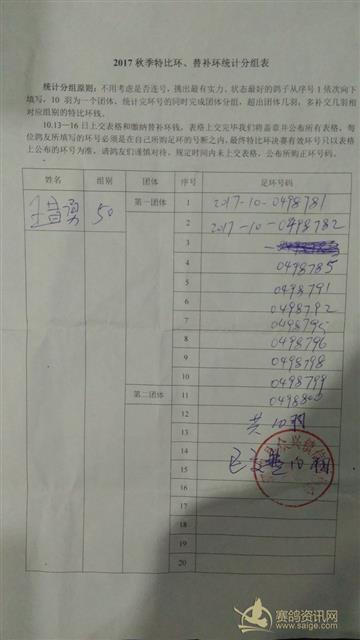 2017 秋季特比环、替补环统计分组表
统计分组原则：不用考虑是否连号，挑出最有实力、状态最好的鸽子从序号 1 依次向下
填写，10 羽为一个团体，统计完环号的同时完成团体分组，超出团体几羽，多补交几羽相
对应组别的特比环钱。
10.13—16 日上交表格和缴纳替补环钱。表格上交完毕我们将盖章并公布所有表格，每
位鸽友所填写的环号必须是在自己所购足环的号断之内，最终特比环决赛有效环号只以表格
上公布的环号为准，请鸽友们谨慎对待，规定时间内未上交表格，公布所购正环号码。
姓名 组别 团体 序号 足环号码
50 第一团体 1 2017-10-0498781
2 2017-10-0498782
3
4 0498785
5 0498791
6 0498792
7 0498795
8 0498796
9 0498798
10 0498799
第二团体 11 0498800
12 共10羽
13
14
15 10羽
16
17
18
19
20
赛鸽资讯网
www.saige.com